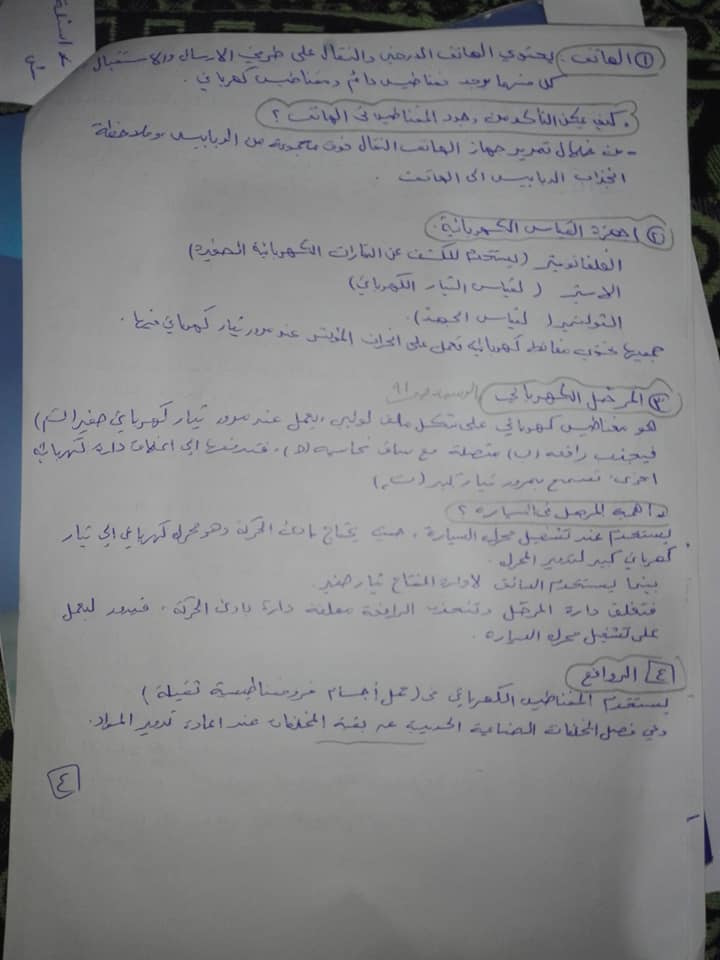 ٨ اسئلة
① الهاتف: يحتوي الهاتف المرجعي والنقال على طرفي الارسال والاستقبال
كل منهما يوجد مغناطيس دائم ومغناطيس كهربائي.
كيف يمكن التأكد من وجود المغناطيس في الهاتف ؟
- من خلال تمرير جهاز الهاتف النقال فوق مجموعة من الدبابيس وملاحظة
انجذاب الدبابيس الى الهاتف
② اجهزة القياس الكهربائية.
الغلفانوميتر (يستخدم للكشف عن التيارات الكهربائية الصغيرة)
الاميتر ( لقياس التيار الكهربائي)
الفولتميتر ( لقياس الجهد).
جميعها تحتوي مغانط كهربائية تعمل على انحراف المؤشر عند مرور تيار كهربائي فيها.
③ المرحل الكهربائي
هو مغناطيس كهربائي على شكل ملف لولبي، يعمل عند مرور تيار كهربائي صغير
فيجذب رافعة (ب) متصلة مع ساق نحاسية، فتدفعها الى اغلاق دارة كهربائية
اخرى، تسمح بمرور تيار كبير
ما اهمية المرحل في السيارة ؟
يستخدم عند تشغيل محرك السيارة، حيث يحتاج بادئ الحركة وهو محرك كهربائي إلى تيار
كهربائي كبير لتدوير المحرك.
بينما يستخدم السائق لادارة المفتاح تيار صغير.
فتغلق دارة المرحل وتنجذب الرافعة مغلقة دارة بادئ الحركة، فيدور ليعمل
على تشغيل محرك السيارة.
٤ الروافع
يستخدم المغناطيس الكهربائي في (حمل أجسام فرومغناطيسية ثقيلة)
وفي فصل المخلفات الصناعية الحديدية عن بقية المخلفات عند اعادة تدوير المواد.
٤